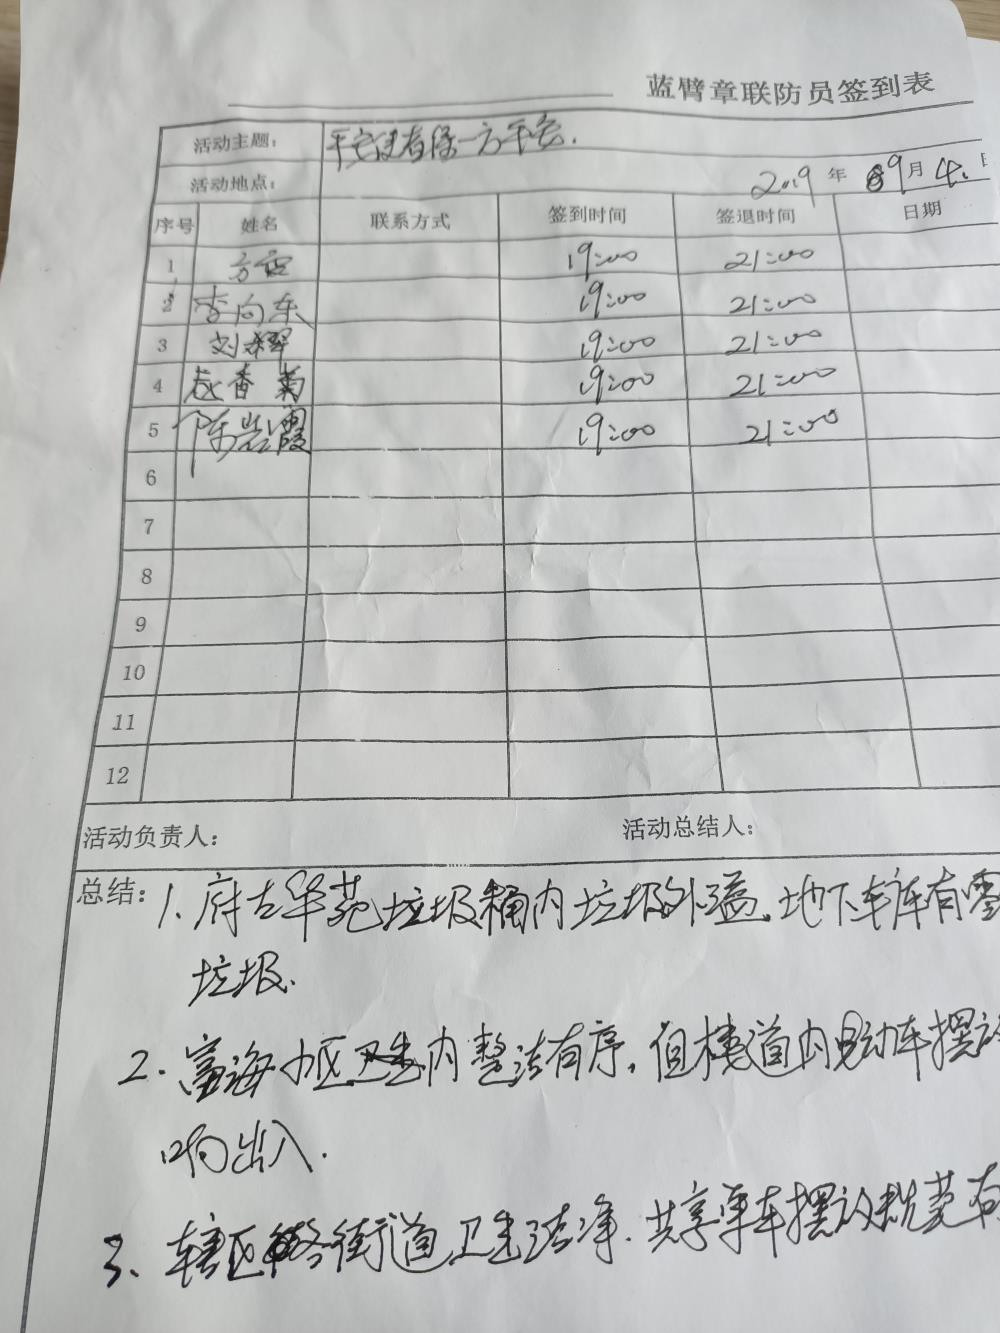 蓝臂章联防员签到表
活动主题： 平安使者保一方平安.
活动地点： 2019 年 9 月 4. 日
序号 姓名 联系方式 签到时间 签退时间 日期
1 19:00 21:00
2 李向东 19:00 21:00
3 刘 19:00 21:00
4 香菊 19:00 21:00
5 陈岩霞 19:00 21:00
6
7
8
9
10
11
12
活动负责人： 活动总结人：
总结： 1. 府左华苑垃圾桶内垃圾外溢.地下车库有零
垃圾.
2. 富海小区卫生内整洁有序，但楼道内电动车摆放
响出入.
3. 辖区街道卫生洁净.共享单车摆放规范有